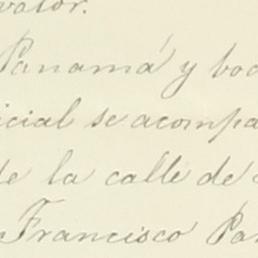 vator.
Panamá y boc
icial se acompa
de la calle de
Francisco Pa